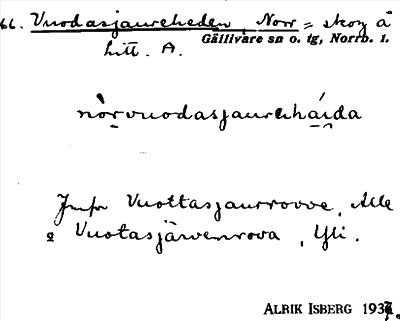 66. Vuodasjaureheden, Norr = skog å
litt. A. Gällivare sn o. tg, Norrb. l.
nòrvuodasjaurehái̯da
Jmfr Vuottasjaurrovve, Alle
o Vuotasjärvenrova, Yli.
ALRIK ISBERG 1937.